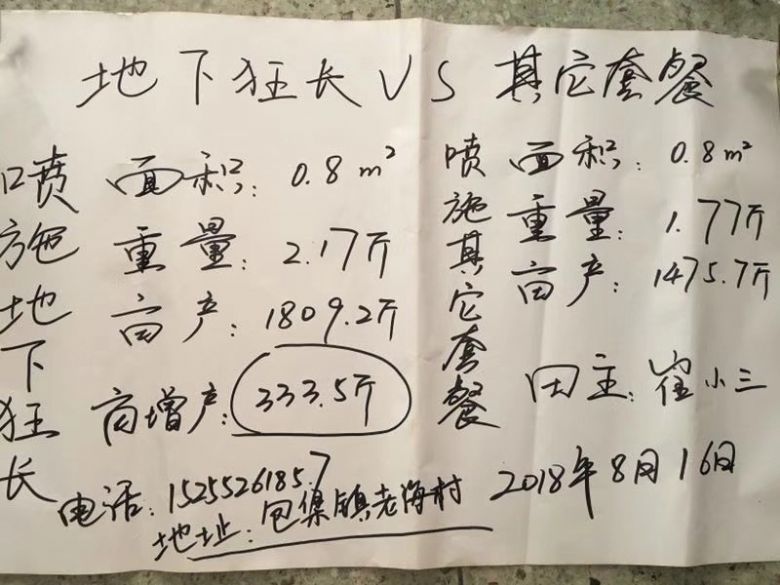 地下狂长VS其它套餐
喷施地下狂长
面积:0.8m²
重量:2.17斤
亩产:1809.2斤
亩增产:333.5斤
喷施其它套餐
面积:0.8m²
重量:1.77斤
亩产:1475.7斤
田主:崔小三
电话:15255261857
地址:包集镇老海村
2018年8月16日